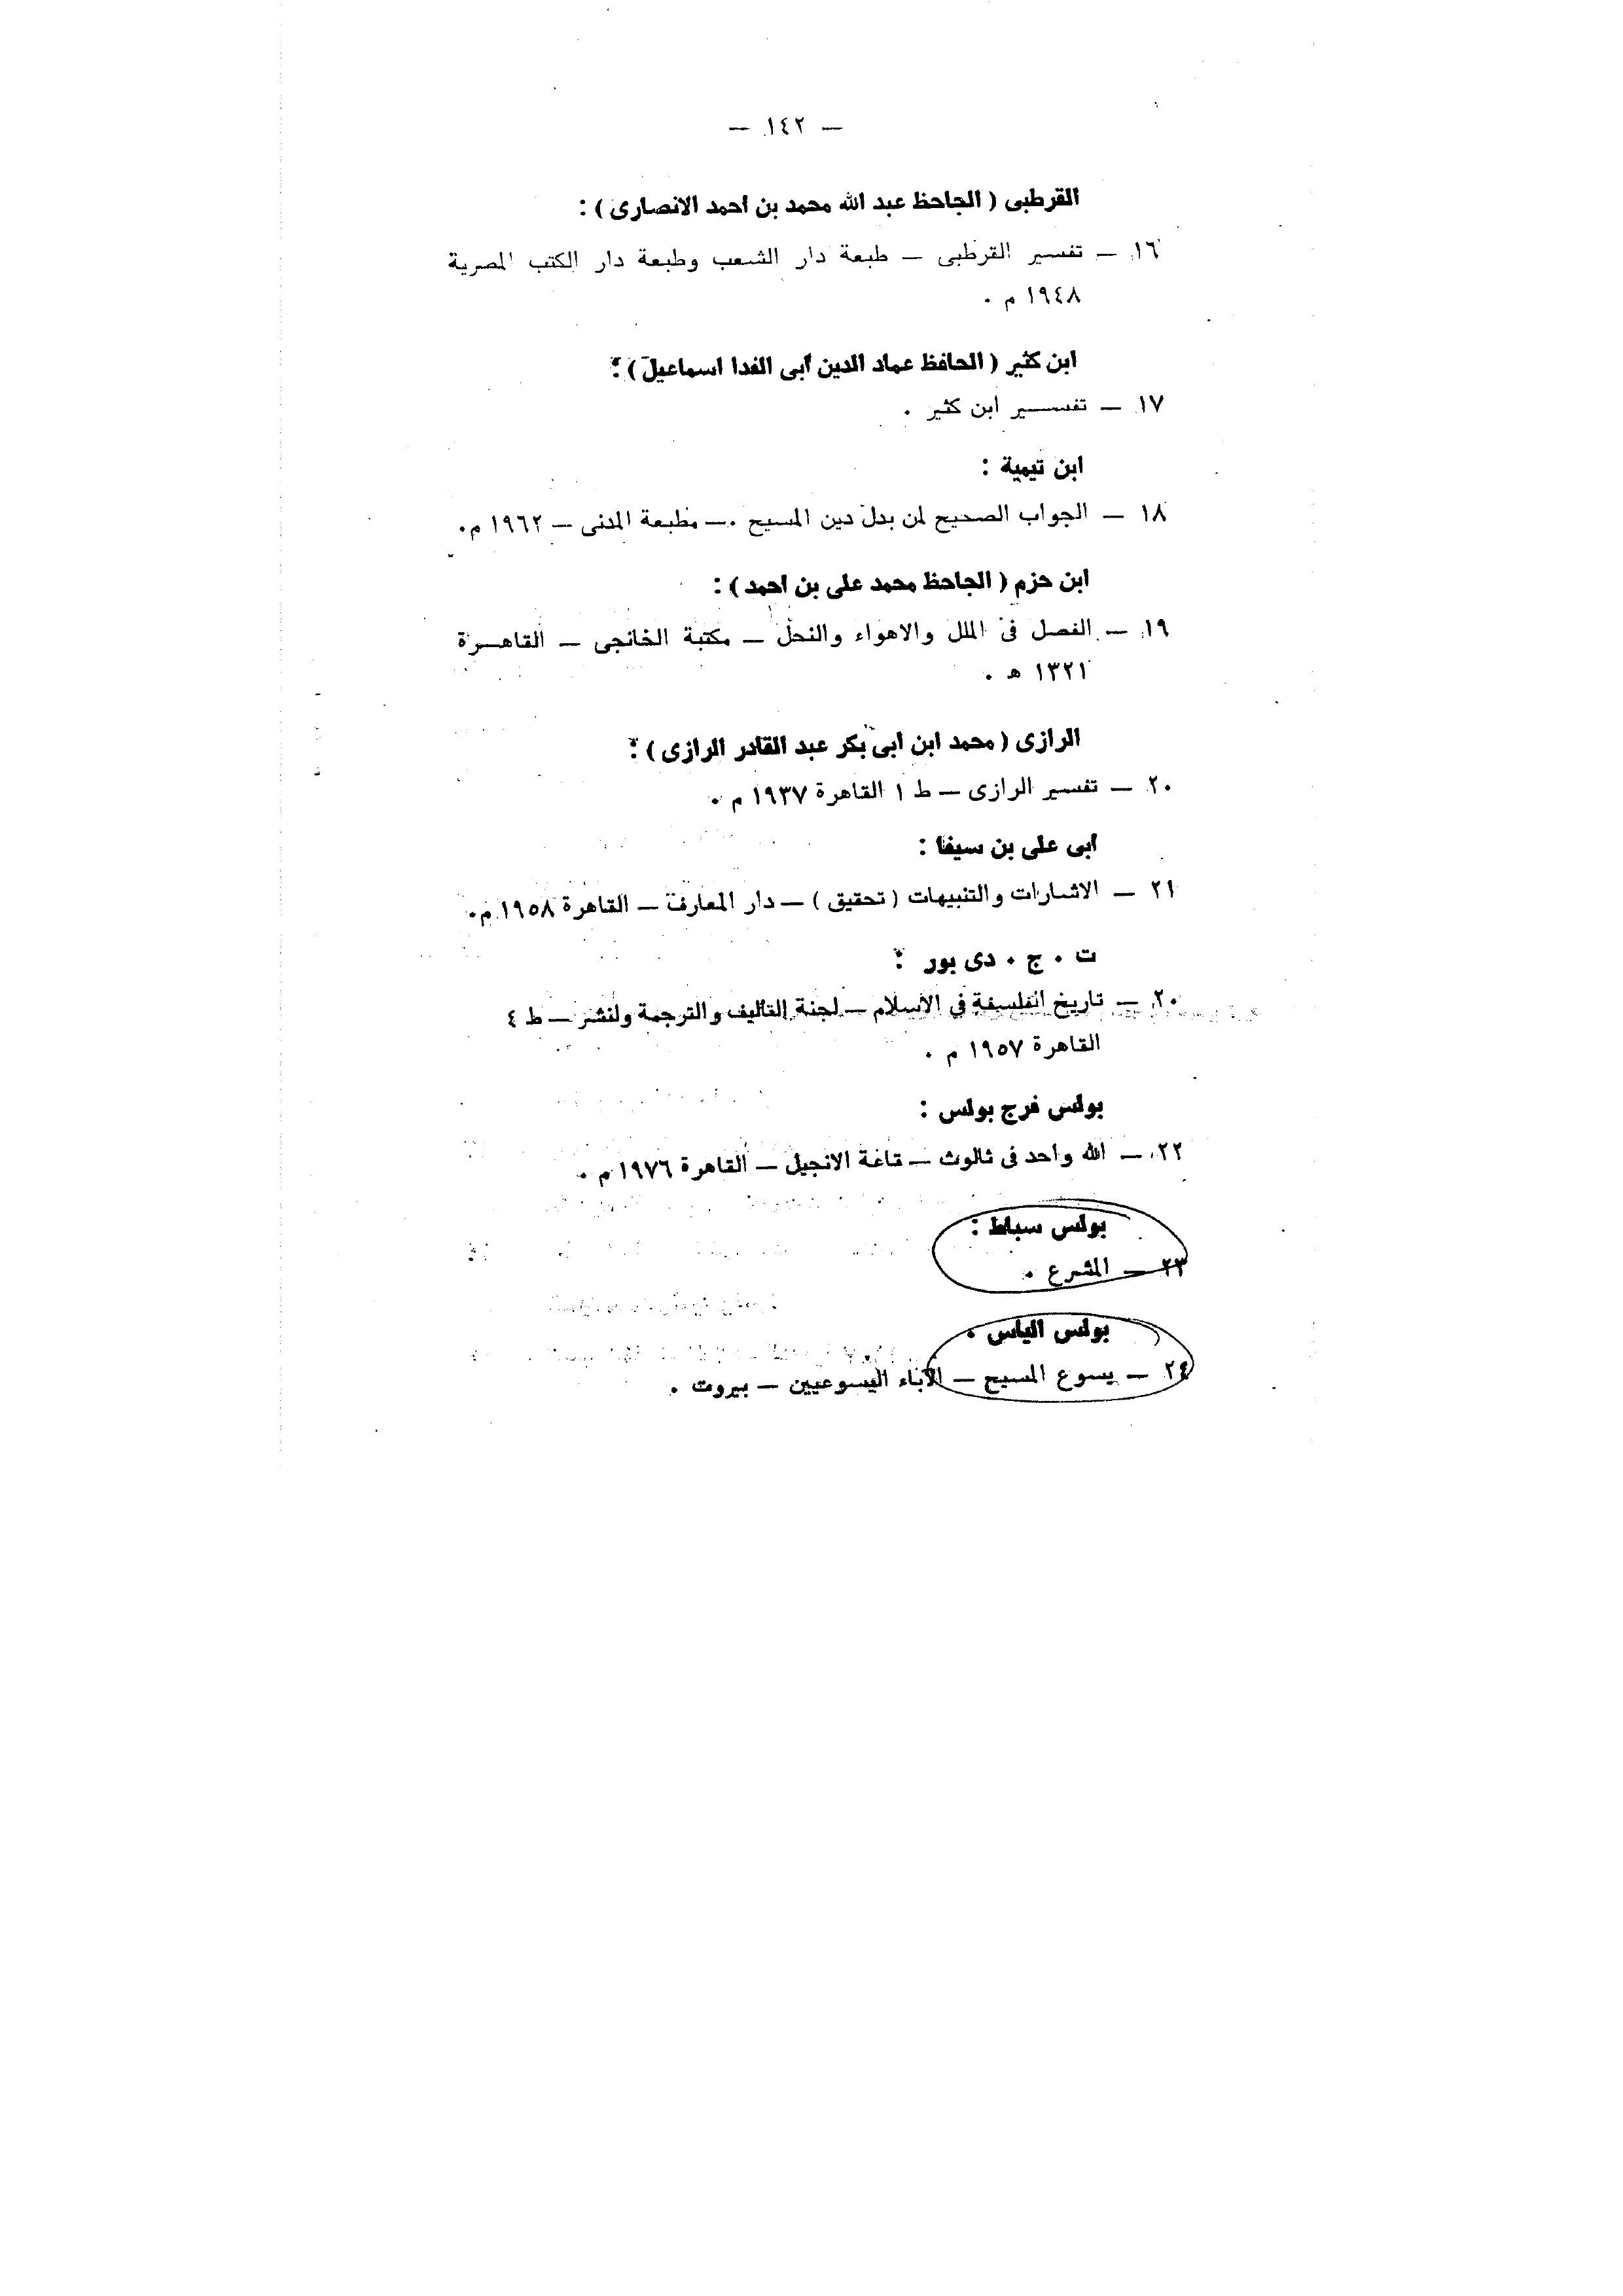 — ١٤٢ —
القرطبى ( الجاحظ عبد الله محمد بن احمد الانصارى ) :
١٦ — تفسير القرطبى — طبعة دار الشعب وطبعة دار الكتب المصرية
١٩٤٨ م ٠
ابن كثير ( الحافظ عماد الدين أبى الفدا اسماعيل ) :
١٧ — تفســـير ابن كثير ٠
ابن تيمية :
١٨ — الجواب الصحيح لمن بدل دين المسيح ٠ — مطبعة المدنى — ١٩٦٢ م٠
ابن حزم ( الجاحظ محمد على بن احمد ) :
١٩ — الفصل فى الملل والاهواء والنحل — مكتبة الخانجى — القاهــرة
١٣٢١ هـ ٠
الرازى ( محمد ابن ابى بكر عبد القادر الرازى ) :
٢٠ — تفسير الرازى — ط ١ القاهرة ١٩٣٧ م ٠
ابى على بن سيفا :
٢١ — الاشارات والتنبيهات ( تحقيق ) — دار المعارف — القاهرة ١٩٥٨ م٠
ت ٠ ج ٠ دى بور :
٢٠ — تاريخ الفلسفة في الاسلام — لجنة التأليف والترجمة ولنشر — ط ٤
القاهرة ١٩٥٧ م ٠
بولس فرج بولس :
٢٢ — الله واحد فى ثالوث — قاعة الانجيل — القاهرة ١٩٧٦ م ٠
بولس سباط :
٢٣ — المشرع ٠
بولس الياس ٠
٢٤ — يسوع المسيح — الآباء اليسوعيين — بيروت ٠